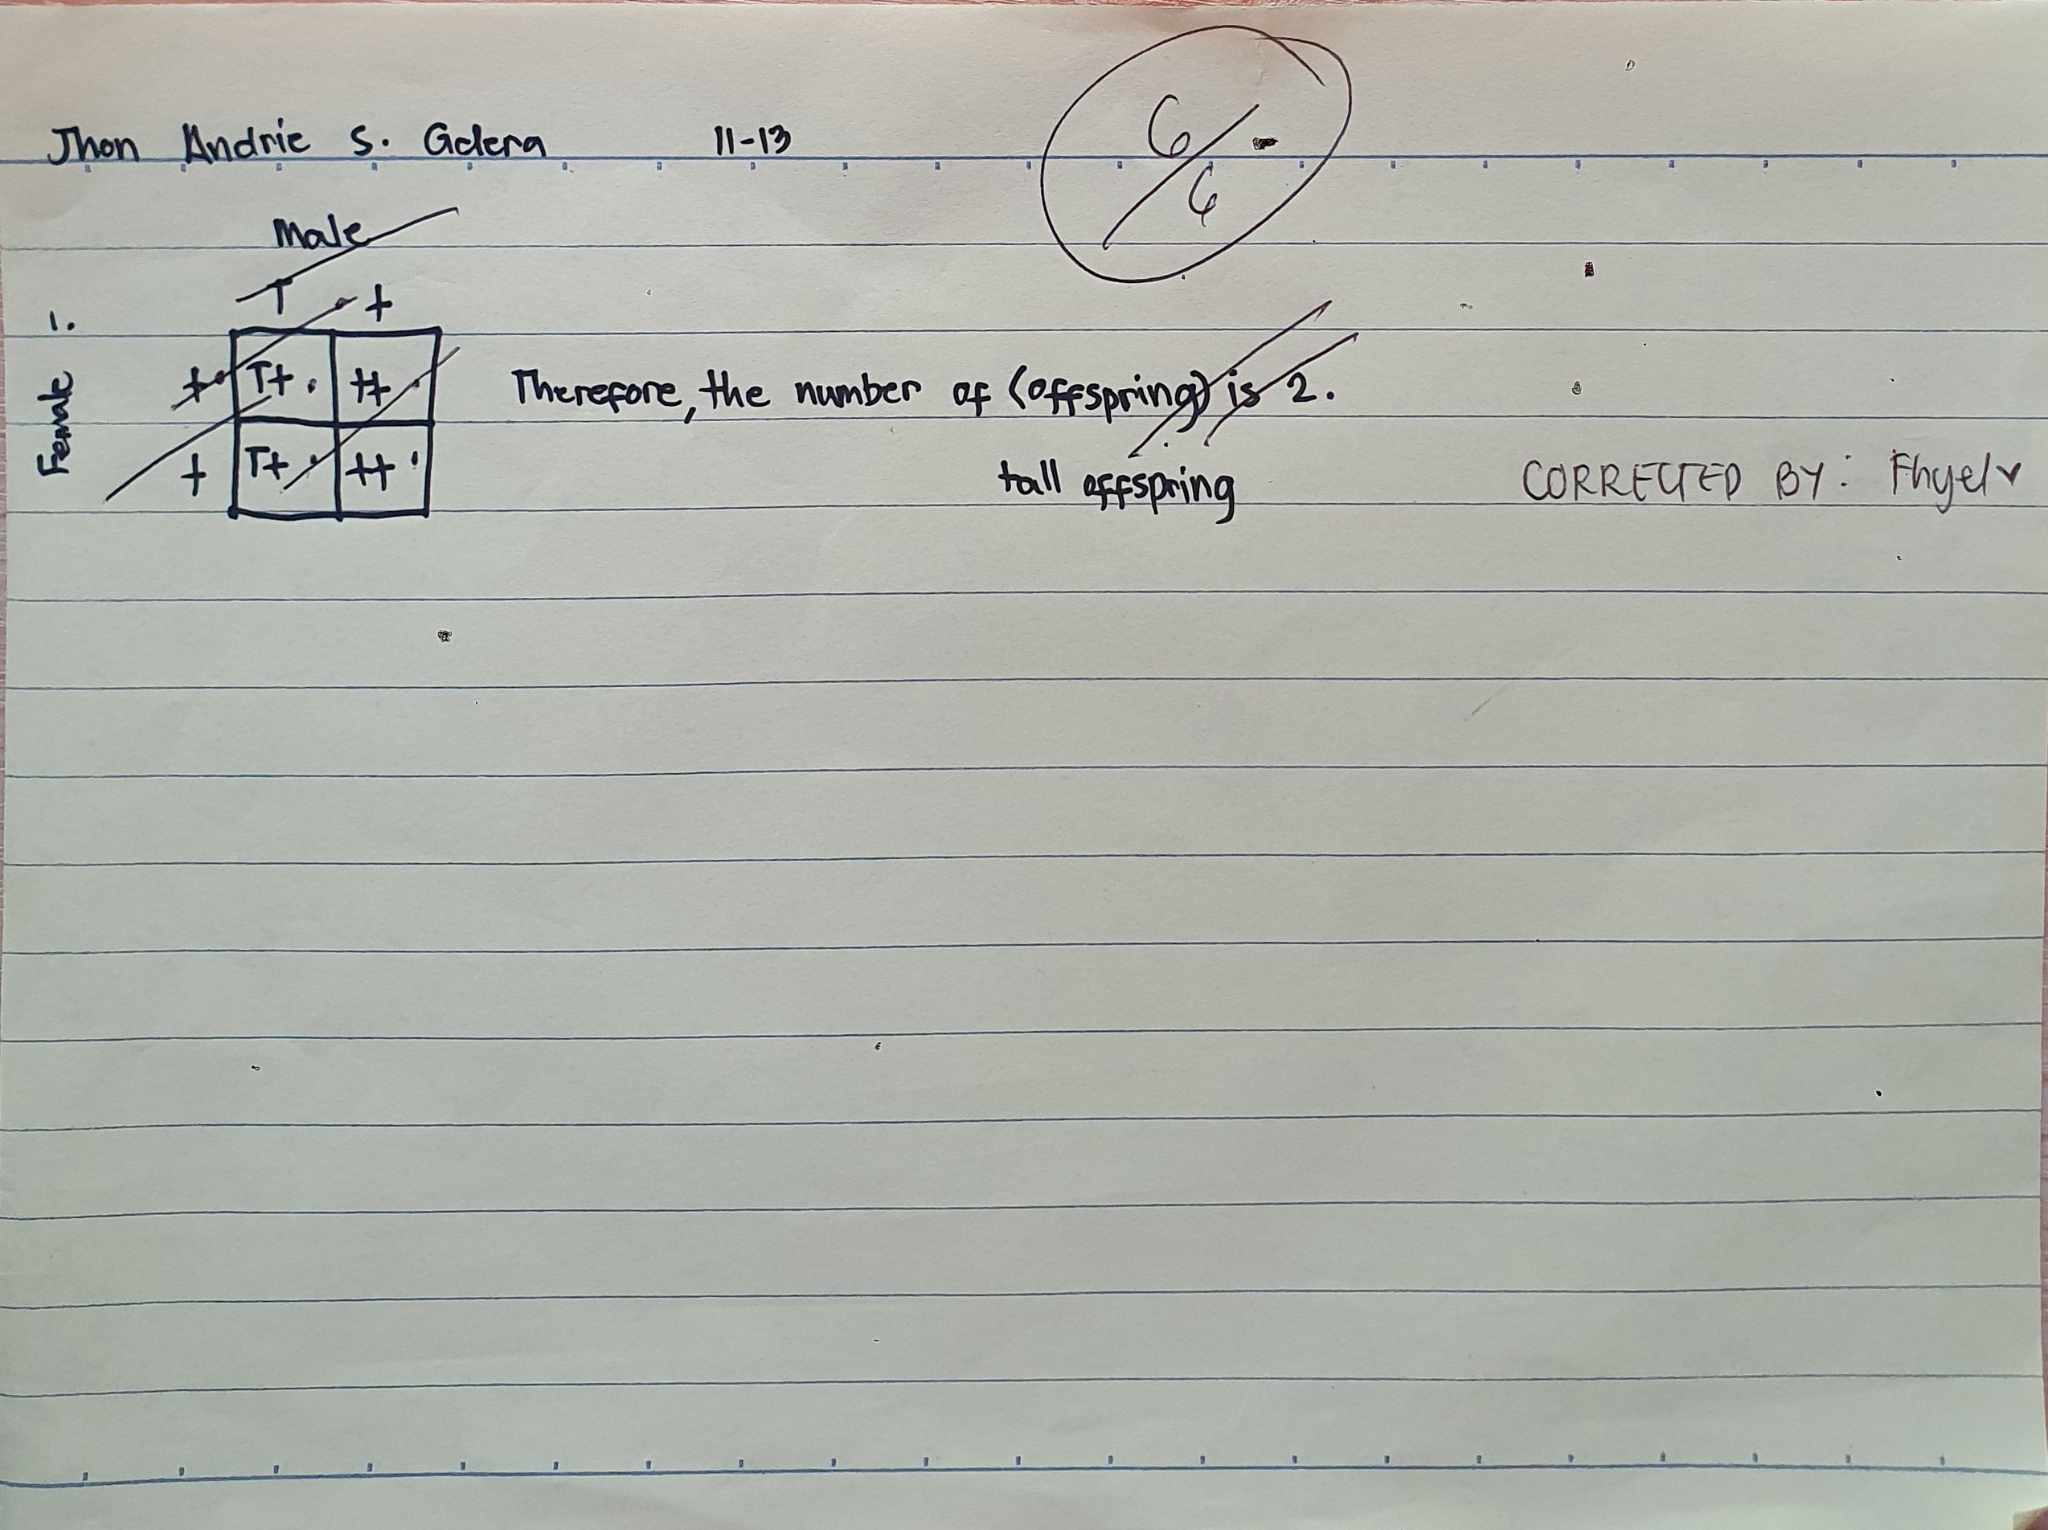 Jhon Andrie S. Galera 11-13
6/6
Male
T t
1.
Female
t Tt tt
t Tt tt
Therefore, the number of (offspring) is 2.
tall offspring
CORRECTED BY: Fhyel